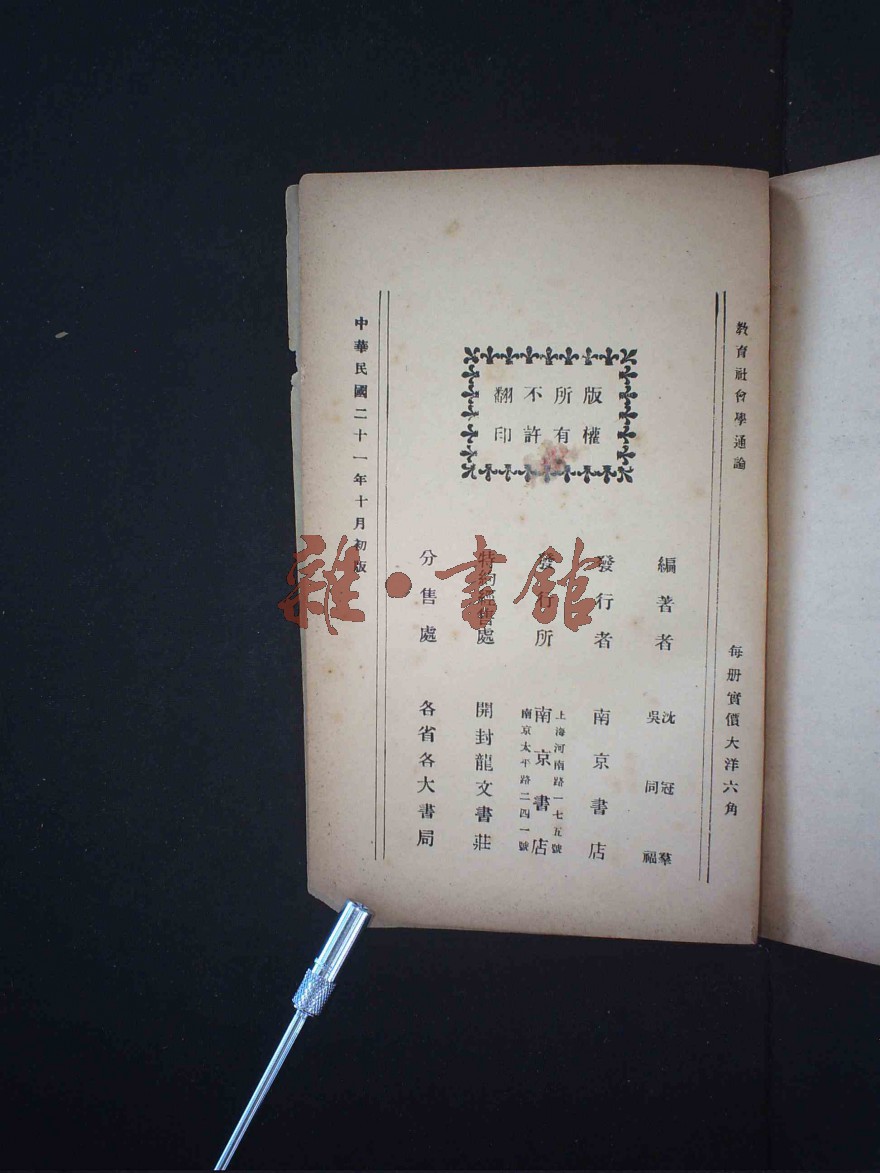 教育社會學通論
每册實價大洋六角
版權
所有
不許
翻印
編著者
沈冠羣
吳同福
發行者
南京書店
發行所
上海河南路一七五號
南京書店
南京太平路二四一號
特約經售處
開封龍文書莊
分售處
各省各大書局
中華民國二十一年十月初版
雜·書館